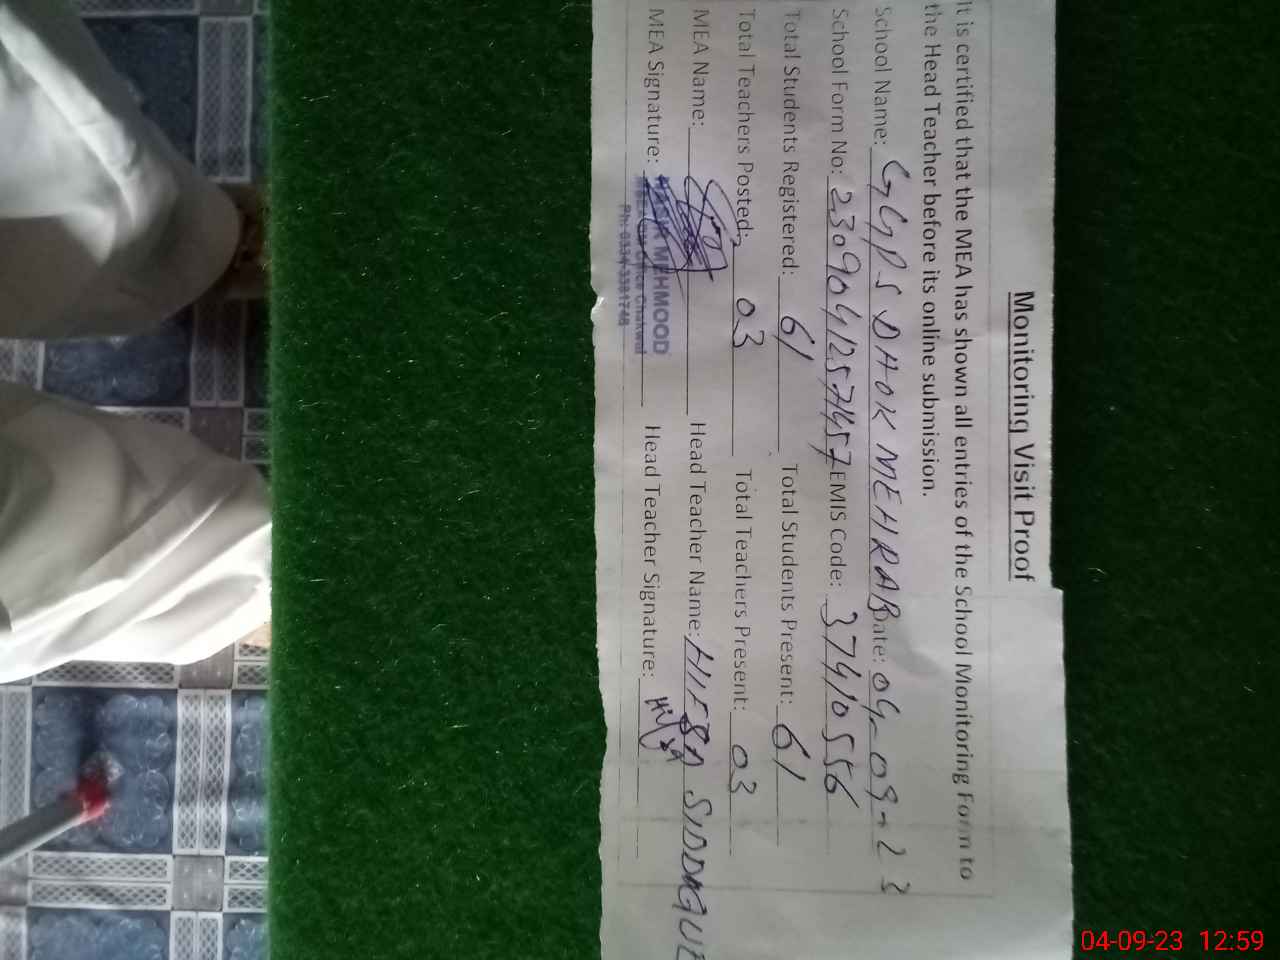 Monitoring Visit Proof
It is certified that the MEA has shown all entries of the School Monitoring Form to
the Head Teacher before its online submission.
School Name: GGPS DHOK MEHRAB Date: 04-09-23
School Form No: 2309041257457 EMIS Code: 37410556
Total Students Registered: 61 Total Students Present: 61
Total Teachers Posted: 03 Total Teachers Present: 03
MEA Name: Head Teacher Name: HIFSA SIDDAQUE
MEA Signature: Head Teacher Signature:
MEHMOOD
Office Chakwal
Ph: 0334-3381748
04-09-23 12:59